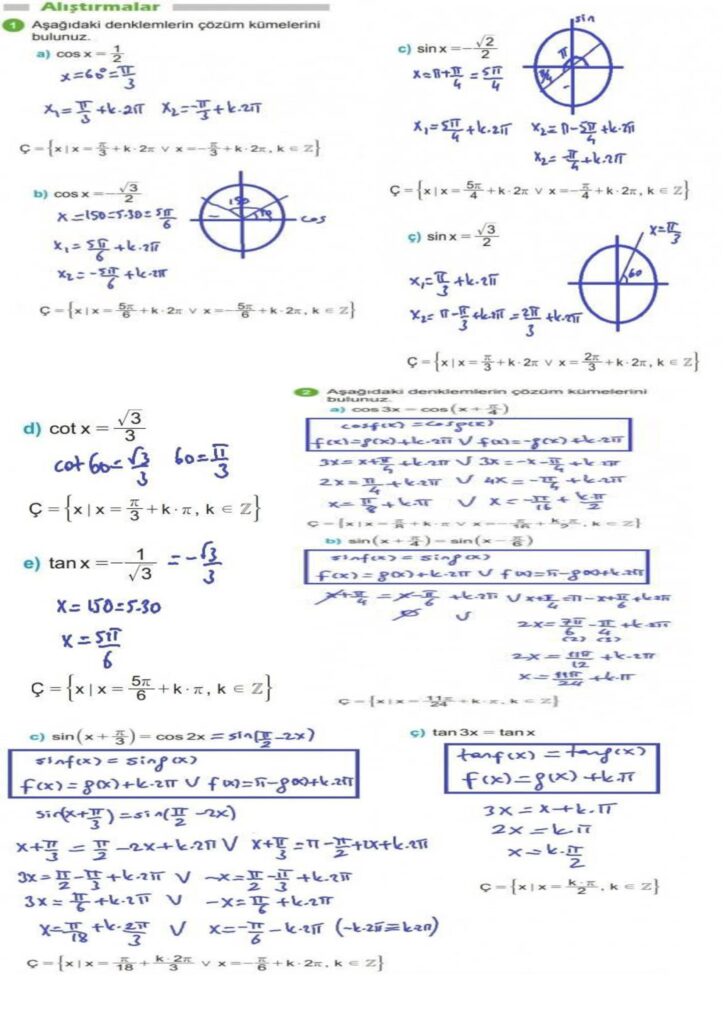 Alıştırmalar
1 Aşağıdaki denklemlerin çözüm kümelerini
bulunuz.
a) cos x = 1/2
x=60°=π/3
x₁=π/3+k·2π x₂=-π/3+k·2π
Ç = {x | x = π/3 + k · 2π ∨ x = -π/3 + k · 2π, k ∈ ℤ}
b) cos x = -√3/2
x=150=5·30=5π/6
x₁=5π/6+k·2π
x₂=-5π/6+k·2π
150
cos
Ç = {x | x = 5π/6 + k · 2π ∨ x = -5π/6 + k · 2π, k ∈ ℤ}
c) sin x = -√2/2
x=π+π/4=5π/4
sin
π
x₁=5π/4+k·2π x₂=π-5π/4+k·2π
x₂=-π/4+k·2π
Ç = {x | x = 5π/4 + k · 2π ∨ x = -π/4 + k · 2π, k ∈ ℤ}
ç) sin x = √3/2
x=π/3
60
x₁=π/3+k·2π
x₂=π-π/3+k·2π=2π/3+k·2π
Ç = {x | x = π/3 + k · 2π ∨ x = 2π/3 + k · 2π, k ∈ ℤ}
d) cot x = √3/3
cot60=√3/3 60=π/3
Ç = {x | x = π/3 + k · π, k ∈ ℤ}
e) tan x = -1/√3 =-√3/3
x=150=5·30
x=5π/6
Ç = {x | x = 5π/6 + k · π, k ∈ ℤ}
2 Aşağıdaki denklemlerin çözüm kümelerini
bulunuz.
a) cos 3x = cos(x + π/4)
cosf(x)=cosg(x)
f(x)=g(x)+k·2π ∨ f(x)=-g(x)+k·2π
3x=x+π/4+k·2π ∨ 3x=-x-π/4+k·2π
2x=π/4+k·2π ∨ 4x=-π/4+k·2π
x=π/8+k·π ∨ x=-π/16+k·π/2
Ç = {x | x = π/8 + k · π ∨ x = -π/16 + k·π/2, k ∈ ℤ}
b) sin(x + π/4) = sin(x - π/6)
sinf(x)=sing(x)
f(x)=g(x)+k·2π ∨ f(x)=π-g(x)+k·2π
x+π/4=x-π/6+k·2π ∨ x+π/4=π-x+π/6+k·2π
∅ ∨
2x=7π/6-π/4+k·2π
(2) (3)
2x=11π/12+k·2π
x=11π/24+k·π
Ç = {x | x = 11π/24 + k · π, k ∈ ℤ}
c) sin(x + π/3) = cos 2x =sin(π/2-2x)
sinf(x)=sing(x)
f(x)=g(x)+k·2π ∨ f(x)=π-g(x)+k·2π
sin(x+π/3)=sin(π/2-2x)
x+π/3=π/2-2x+k·2π ∨ x+π/3=π-π/2+2x+k·2π
3x=π/2-π/3+k·2π ∨ -x=π/2-π/3+k·2π
3x=π/6+k·2π ∨ -x=π/6+k·2π
x=π/18+k·2π/3 ∨ x=-π/6-k·2π (-k·2π≡k2π)
Ç = {x | x = π/18 + k·2π/3 ∨ x = -π/6 + k · 2π, k ∈ ℤ}
ç) tan 3x = tan x
tanf(x)=tang(x)
f(x)=g(x)+k·π
3x=x+k·π
2x=k·π
x=k·π/2
Ç = {x | x = k·π/2, k ∈ ℤ}